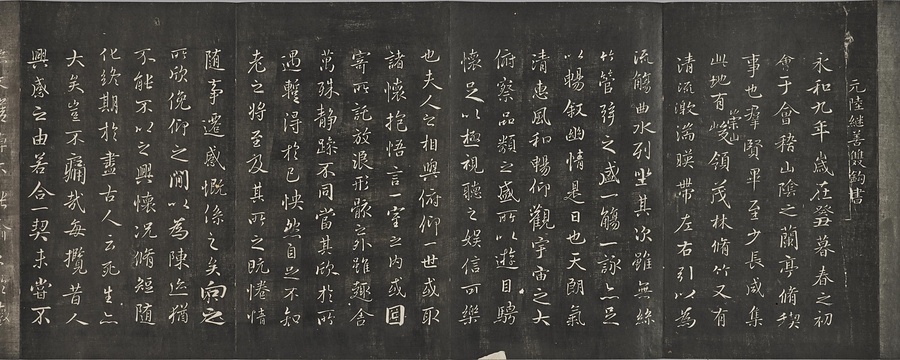 元陸继善雙鈎書
永和九年歲在癸丑暮春之初
會于會稽山陰之蘭亭脩稧
事也羣賢畢至少長咸集
此地有崇山峻領茂林脩竹又有
清流激湍暎帶左右引以為
流觴曲水列坐其次雖無絲
竹管弦之盛一觴一詠亦足
以暢叙幽情是日也天朗氣
清惠風和暢仰觀宇宙之大
俯察品類之盛所以遊目騁
懷足以極視聽之娛信可樂
也夫人之相與俯仰一世或取
諸懷抱悟言一室之內或因
寄所託放浪形骸之外雖趣舍
萬殊靜躁不同當其欣於所
遇暫得於己快然自足不知
老之將至及其所之既惓情
隨事遷感慨係之矣向之
所欣俛仰之閒以為陳迹猶
不能不以之興懷況脩短隨
化終期於盡古人云死生亦
大矣豈不痛哉每攬昔人
興感之由若合一契未嘗不